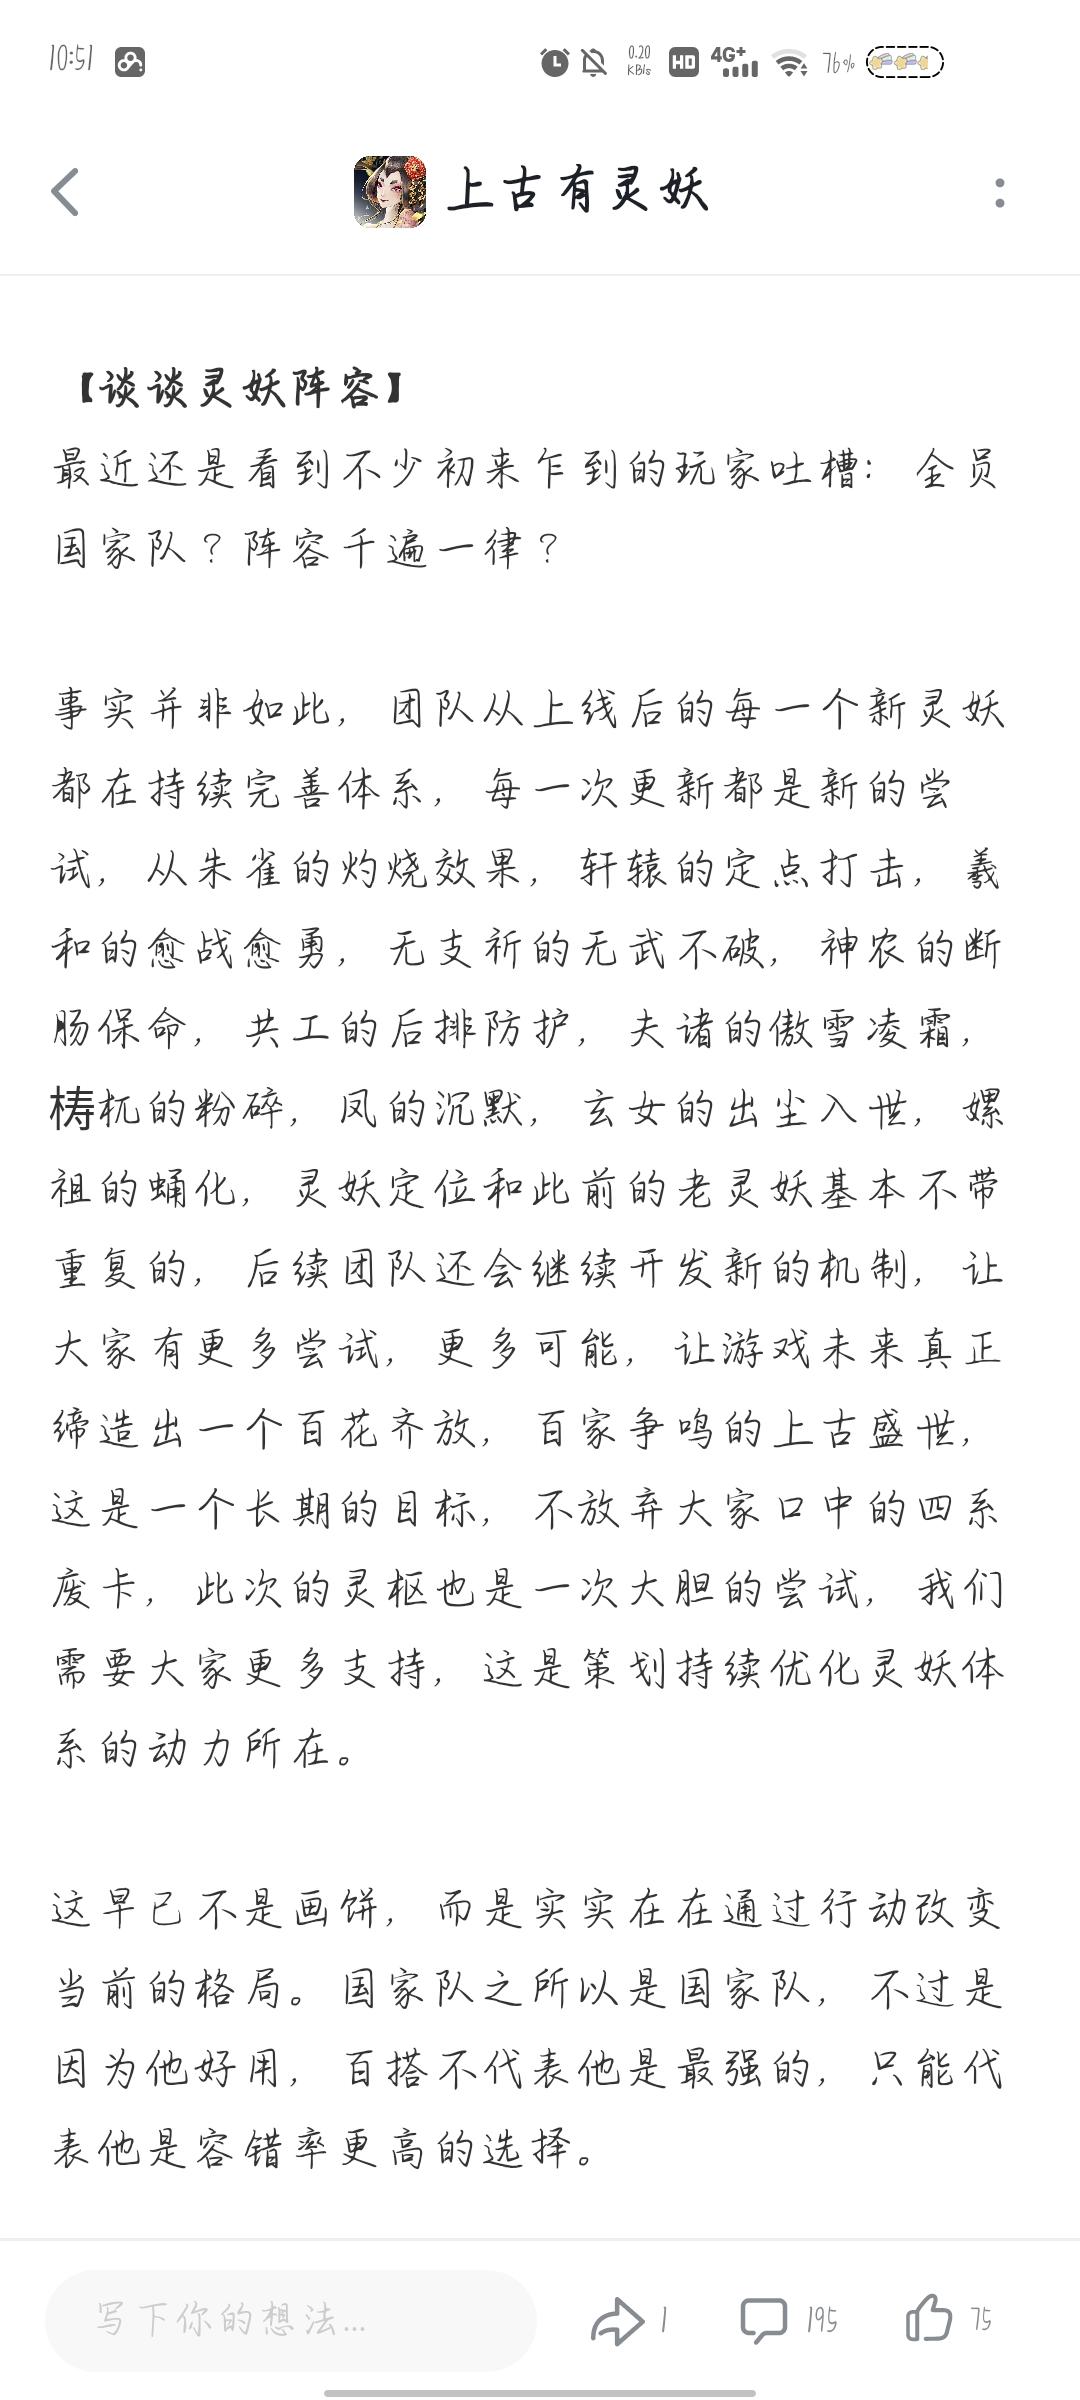 10:51
0.20
KB/s
HD
4G+
76%
上古有灵妖
【谈谈灵妖阵容】
最近还是看到不少初来乍到的玩家吐槽：全员
国家队？阵容千遍一律？
事实并非如此，团队从上线后的每一个新灵妖
都在持续完善体系，每一次更新都是新的尝
试，从朱雀的灼烧效果，轩辕的定点打击，羲
和的愈战愈勇，无支祈的无武不破，神农的断
肠保命，共工的后排防护，夫诸的傲雪凌霜，
梼杌的粉碎，凤的沉默，玄女的出尘入世，嫘
祖的蛹化，灵妖定位和此前的老灵妖基本不带
重复的，后续团队还会继续开发新的机制，让
大家有更多尝试，更多可能，让游戏未来真正
缔造出一个百花齐放，百家争鸣的上古盛世，
这是一个长期的目标，不放弃大家口中的四系
废卡，此次的灵枢也是一次大胆的尝试，我们
需要大家更多支持，这是策划持续优化灵妖体
系的动力所在。
这早已不是画饼，而是实实在在通过行动改变
当前的格局。国家队之所以是国家队，不过是
因为他好用，百搭不代表他是最强的，只能代
表他是容错率更高的选择。
写下你的想法...
1
195
75